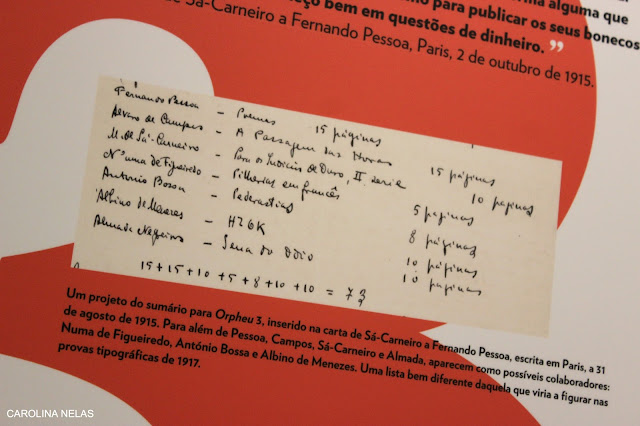 ma alguma que
mo para publicar os seus bonecos
eço bem em questões de dinheiro. ”
de Sá-Carneiro a Fernando Pessoa, Paris, 2 de outubro de 1915.
Fernando Pessoa – Poemas 15 páginas
Alvaro de Campos – A Passagem das Horas 15 páginas
M. de Sá-Carneiro – Para os Indicios de Ouro, II serie 10 paginas
Numa de Figueiredo – Pilherias em francês 5 páginas
Antonio Bossa – Pederastias 8 páginas
Albino de Menezes – H26K 10 páginas
Almada Negreiros – Scena do Odio 10 páginas
15 + 15 + 10 + 5 + 8 + 10 + 10 = 73
Um projeto do sumário para Orpheu 3, inserido na carta de Sá-Carneiro a Fernando Pessoa, escrita em Paris, a 31
de agosto de 1915. Para além de Pessoa, Campos, Sá-Carneiro e Almada, aparecem como possíveis colaboradores:
Numa de Figueiredo, António Bossa e Albino de Menezes. Uma lista bem diferente daquela que viria a figurar nas
provas tipográficas de 1917.
CAROLINA NELAS